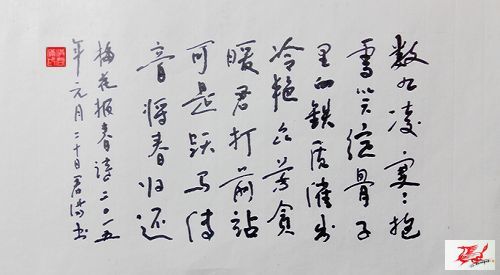 数九凌寒〻抱
雪笑绽骨子
里的铁质催出
冷艳等贪
暖君打前站
可是跃马传
音将春归还
梅花报春诗二〇一五
年元月二十日书